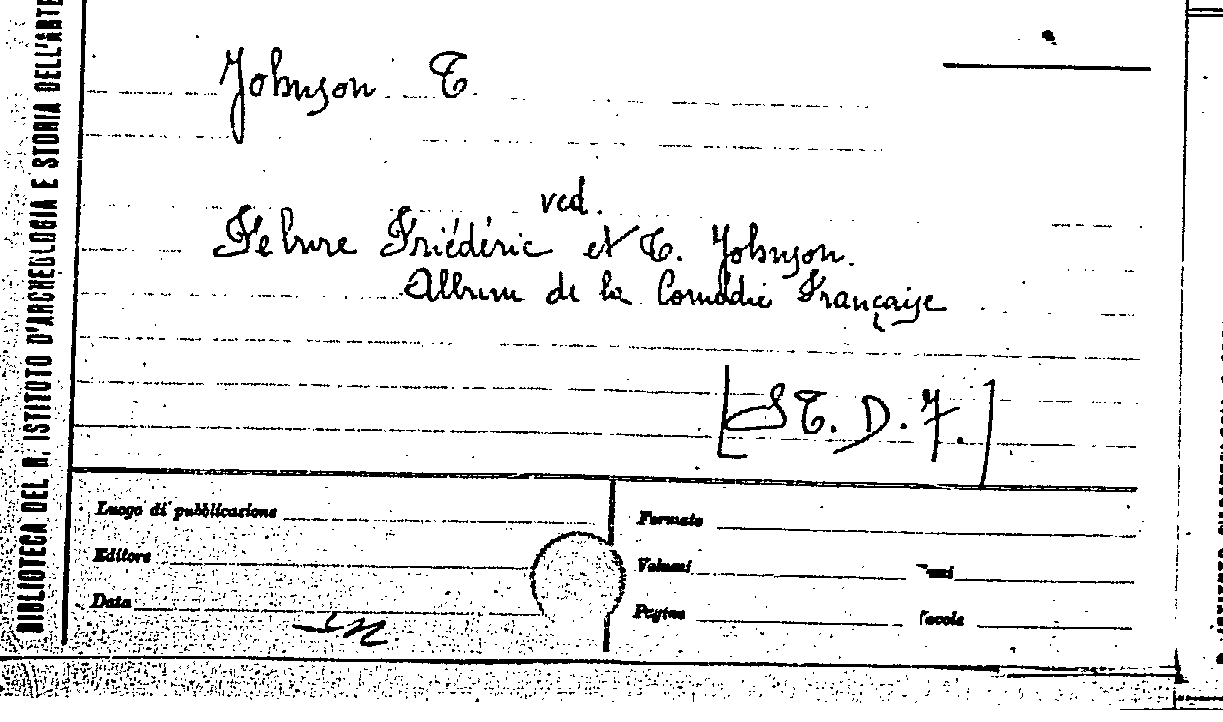 BIBLIOTECA DEL R. ISTITUTO D'ARCHEOLOGIA E STORIA DELL'ARTE
Johnson T.
ved.
Febvre Friédéric et T. Johnson.
Album de la Comédie Française
[ST. D. F.]
Luogo di pubblicazione
Editore
Data
Formato
Volumi
Pagine
Tavole